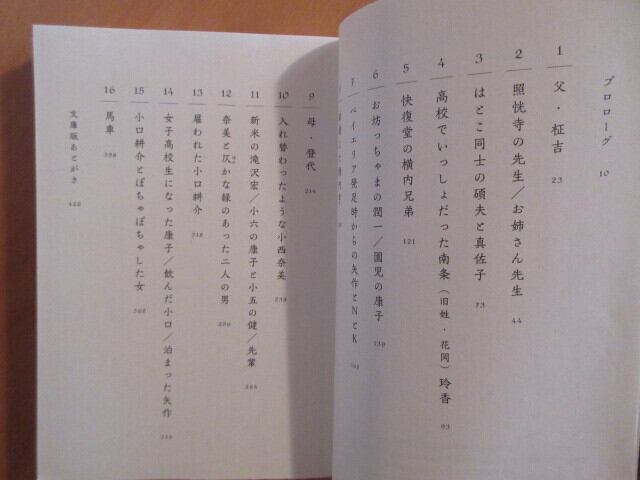 プロローグ 10
1 父・柾吉 23
2 照恍寺の先生／お姉さん先生 44
3 はとこ同士の碩夫と真佐子 73
4 高校でいっしょだった南条（旧姓・花岡）玲香 93
5 快復堂の横内兄弟 121
6 お坊っちゃまの潤一／園児の康子 139
7 ベイエリア発足時からの矢作とNとK
9 母・登代 214
10 入れ替わったような小西奈美 238
11 新米の滝沢宏／小六の康子と小五の健／先輩 264
12 奈美と仄かな縁のあった二人の男 290
13 雇われた小口耕介 318
14 女子高校生になった康子／飲んだ小口／泊まった矢作 340
15 小口耕介とぽちゃぽちゃした女 368
16 馬車 398
文庫版あとがき 422